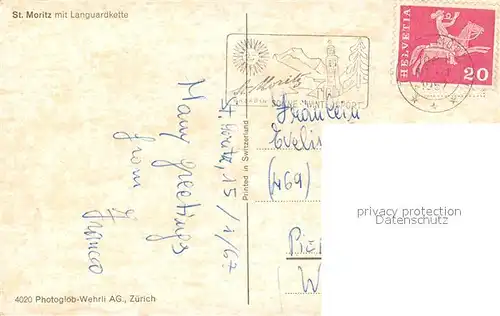 St. Moritz mit Languardkette
St. Moritz
SONNE WINTERSPORT
HELVETIA
20
Many Greetings
from
Franco
St. Moritz, 15/1/67
Printed in Switzerland
Fräulein
(469)
privacy protection
Datenschutz
4020 Photoglob-Wehrli AG., Zürich